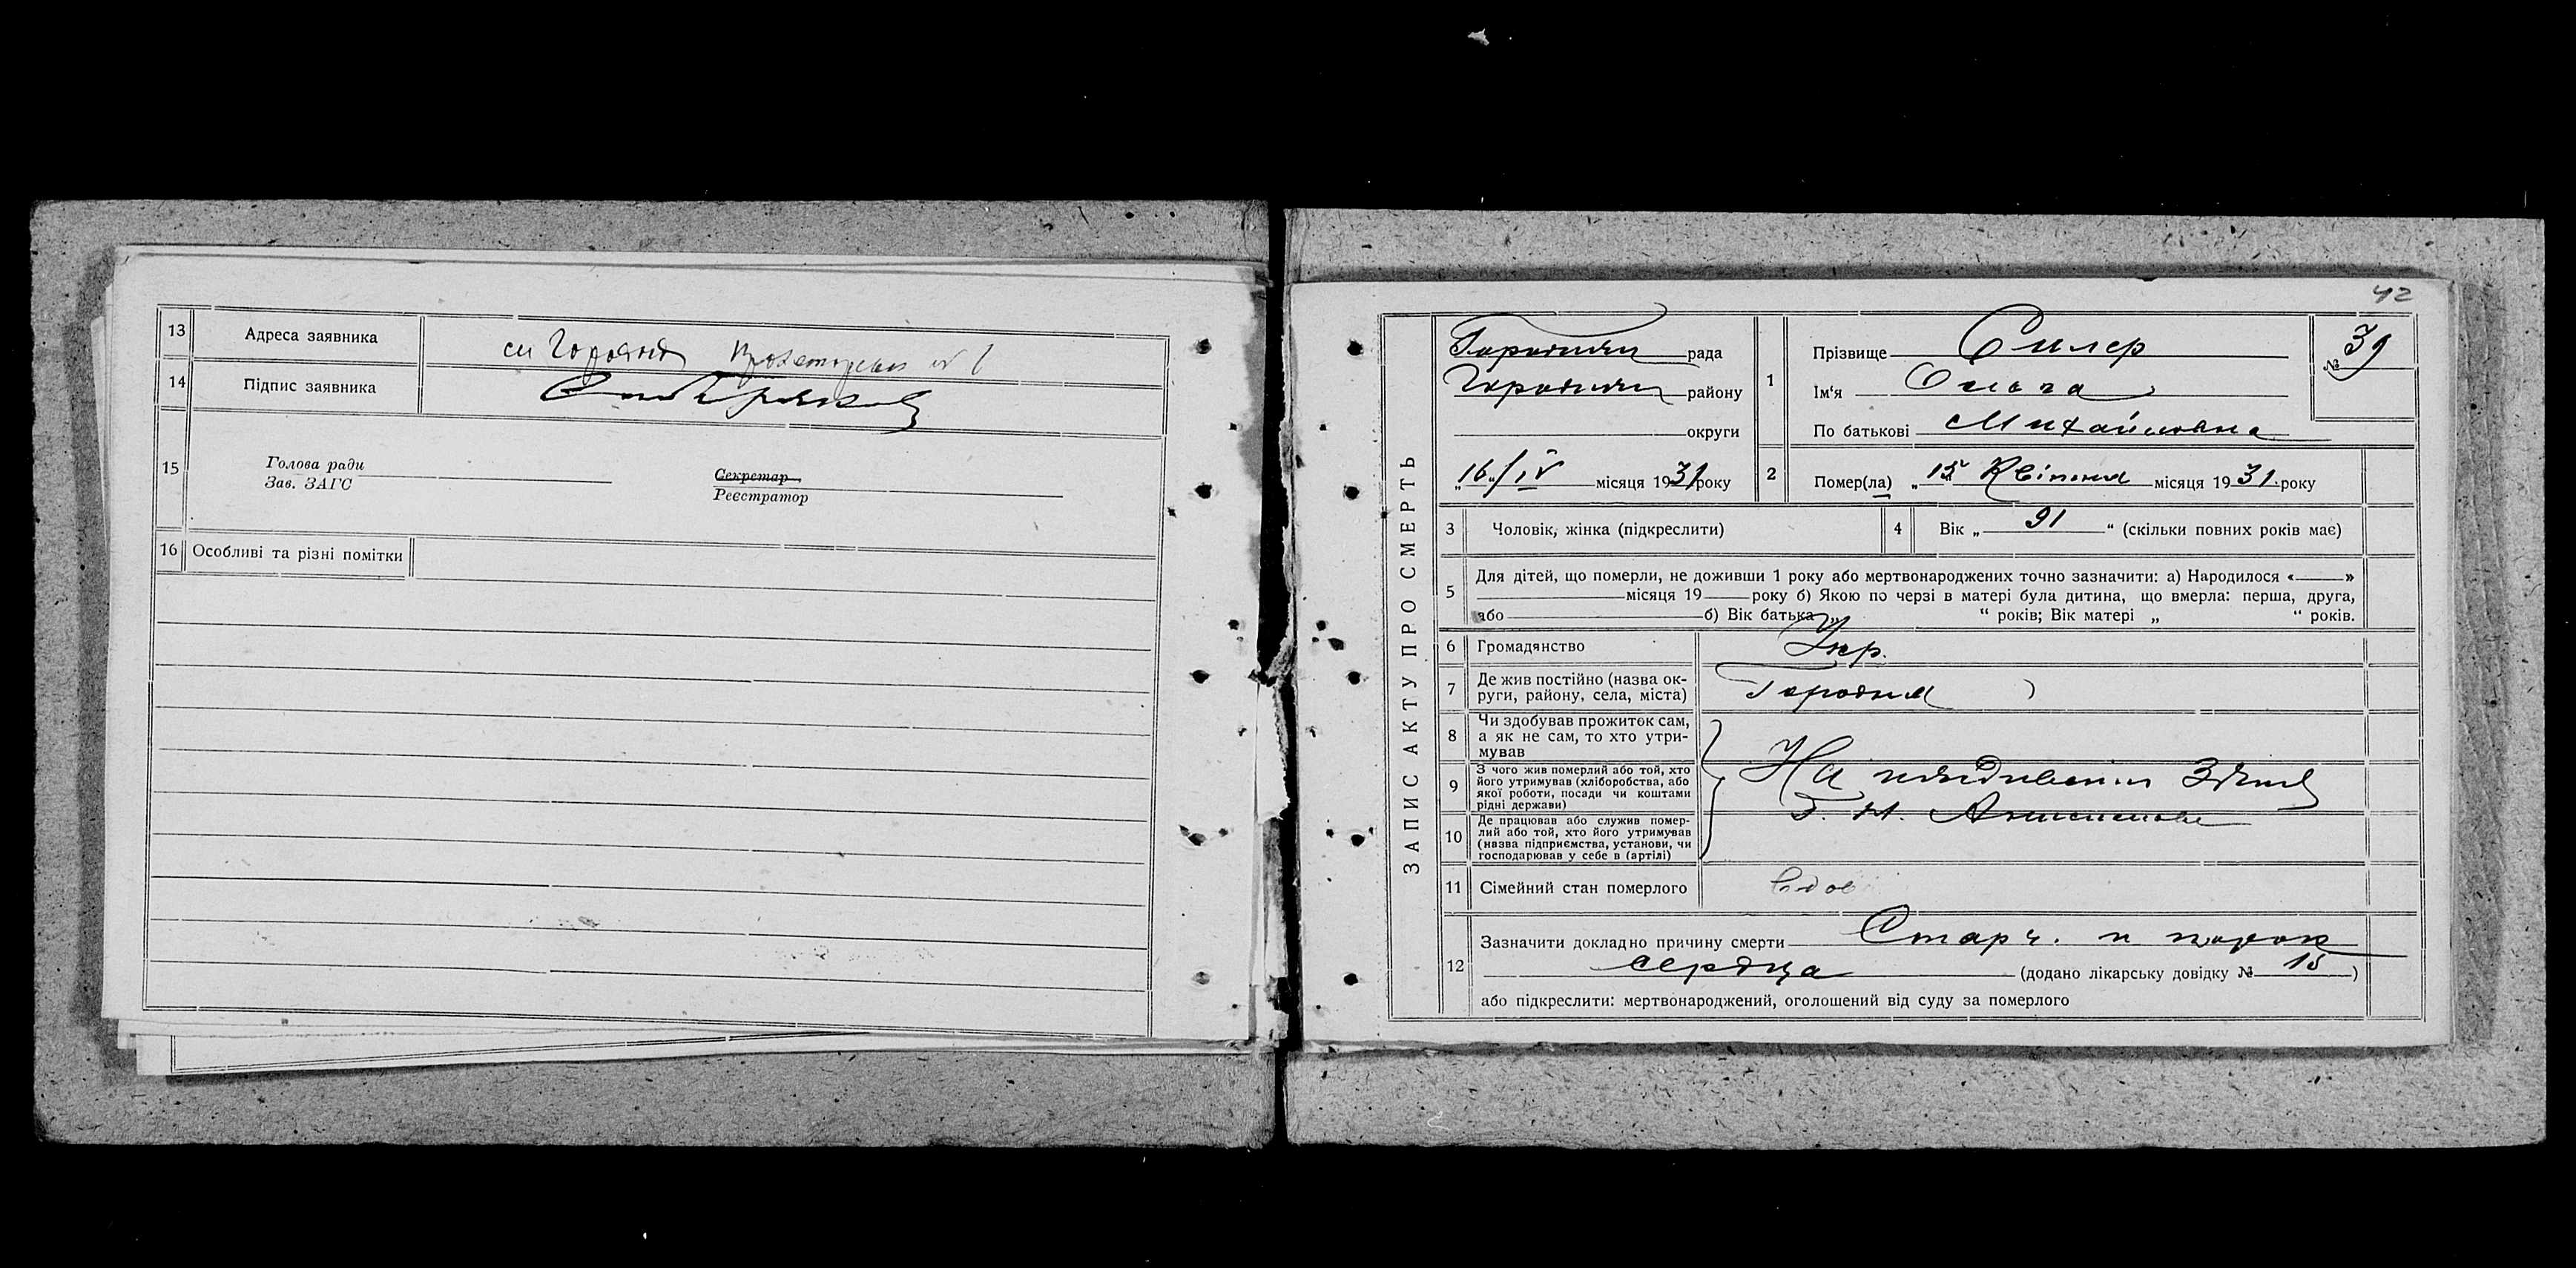 13 Адреса заявника см Городня Пролетарська № 1
14 Підпис заявника
15 Голова ради Секретар
Зав. ЗАГС Реєстратор
16 Особливі та різні помітки
42
ЗАПИС АКТУ ПРО СМЕРТЬ
рада
району
округи
„16“/IV місяця 1931 року
1 Прізвище Силер
Ім‘я Ольга
По батькові Михайловна
№ 39
2 Помер(ла) „15“ Квітня місяця 1931 року
3 Чоловік, жінка (підкреслити)
4 Вік „ 91 “ (скільки повних років має)
5 Для дітей, що померли, не доживши 1 року або мертвонароджених точно зазначити: а) Народилося « »
місяця 19 року б) Якою по черзі в матері була дитина, що вмерла: перша, друга,
або б) Вік батька „ “ років; Вік матері „ “ років.
6 Громадянство Укр.
7 Де жив постійно (назва ок-
руги, району, села, міста) Городня
8 Чи здобував прожиток сам,
а як не сам, то хто утри-
мував
9 З чого жив померлий або той, хто
його утримував (хліборобства, або
якої роботи, посади чи коштами
рідні держави)
На
10 Де працював або служив помер-
лий або той, хто його утримував
(назва підприємства, установи, чи
господарював у себе в (артілі)
11 Сімейний стан померлого вдов
12 Зазначити докладно причину смерти Старч. и порок
сердца (додано лікарську довідку № 15)
або підкреслити: мертвонароджений, оголошений від суду за померлого